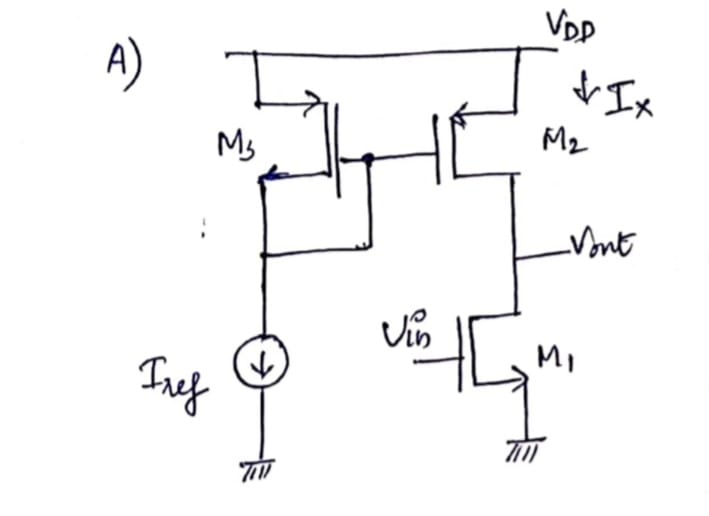 A)
VDD
↓ Ix
M3
M2
Vout
Vin
M1
Iref